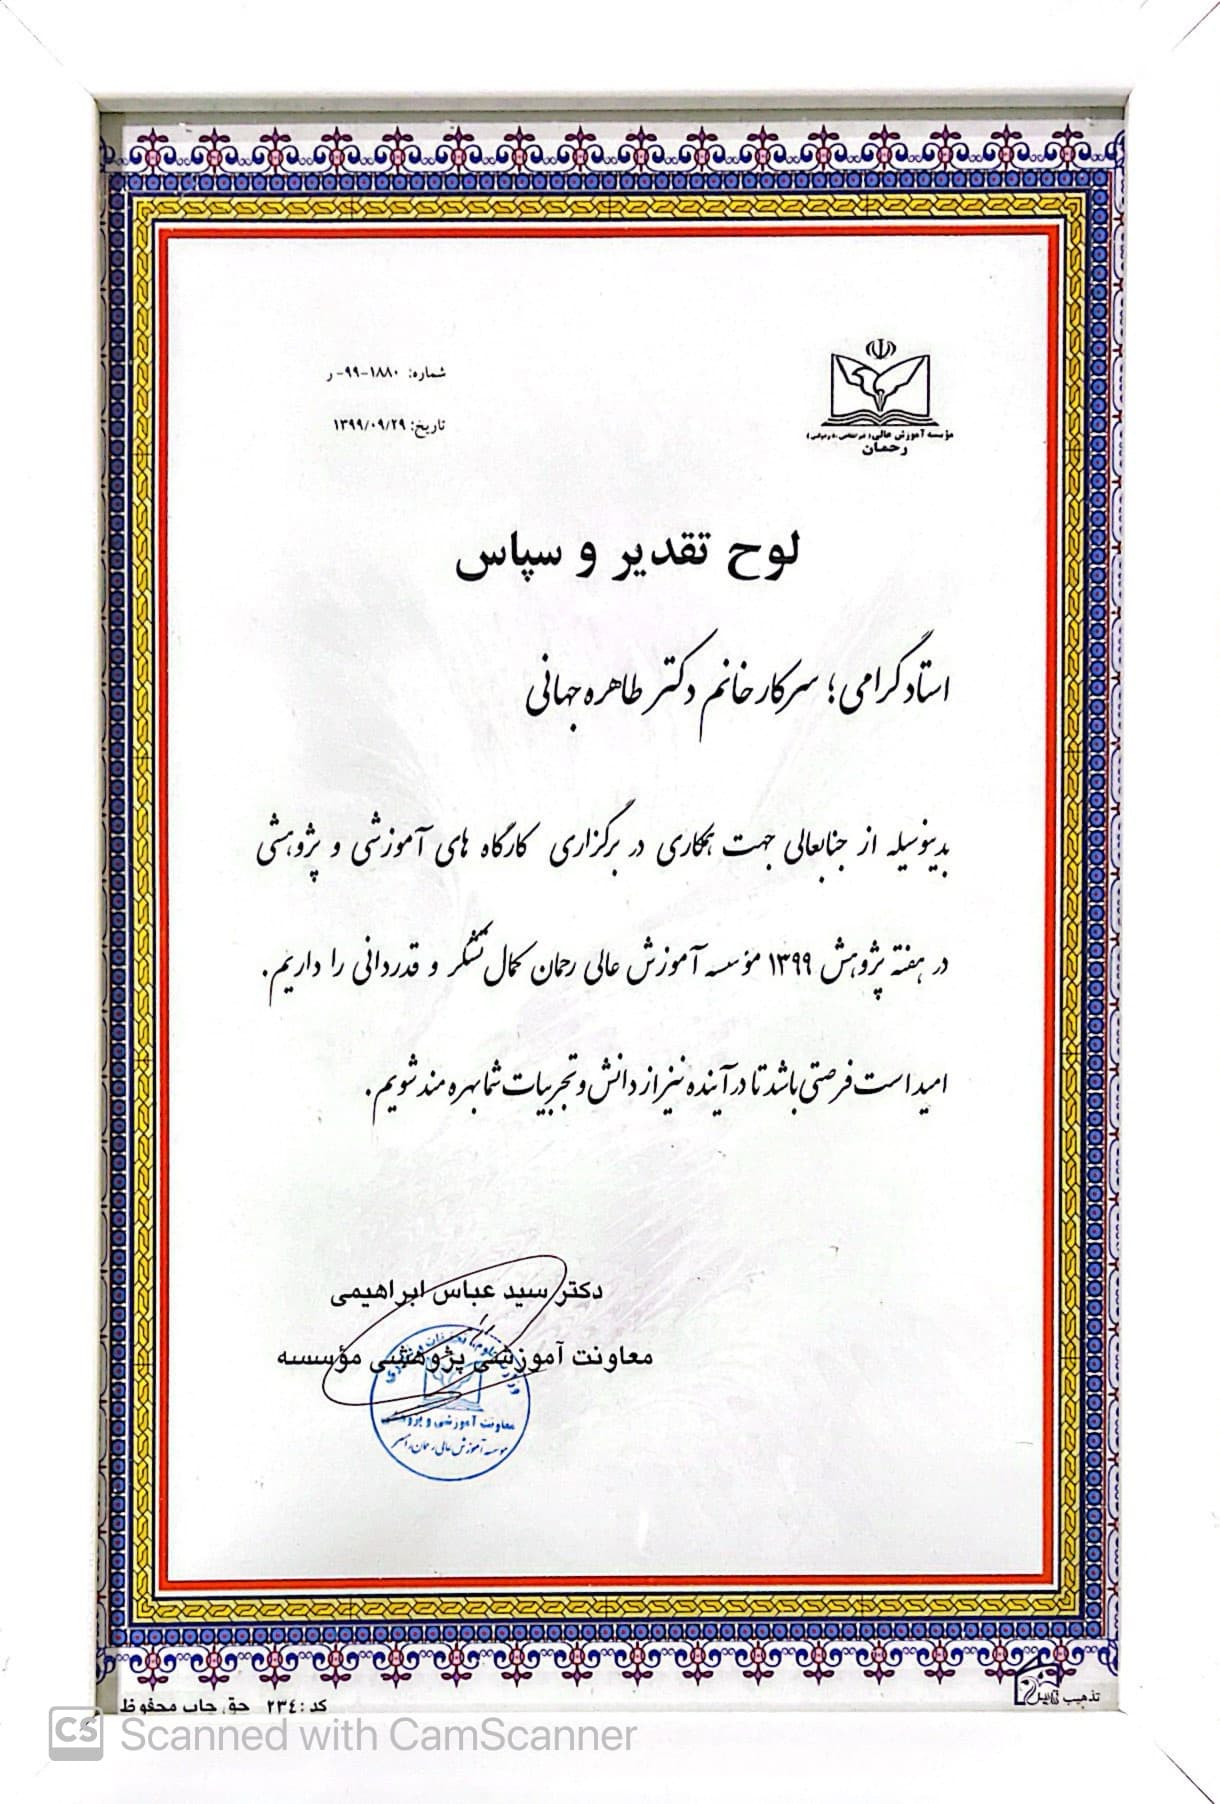 مؤسسه آموزش عالی (غیرانتفاعی
رحمان
شماره: ۱۸۸۰-۹۹-ر
تاریخ: ۱۳۹۹/۰۹/۲۹
لوح تقدیر و سپاس
استاد گرامی؛ سرکار خانم دکتر طاهره جهانی
بدینوسیله از جنابعالی جهت همکاری در برگزاری کارگاه های آموزشی و پژوهشی
در هفته پژوهش ۱۳۹۹ مؤسسه آموزش عالی رحمان کمال تشکر و قدردانی را داریم.
امید است فرصتی باشد تا در آینده نیز از دانش و تجربیات شما بهره مند شویم.
دکتر سید عباس ابراهیمی
معاونت آموزشی پژوهشی مؤسسه
معاونت آموزشی و پژوهشی
موسسه آموزش عالی رحمان رامسر
تذهیب
کد: ۲۳۴ حق چاپ محفوظ
CS Scanned with CamScanner